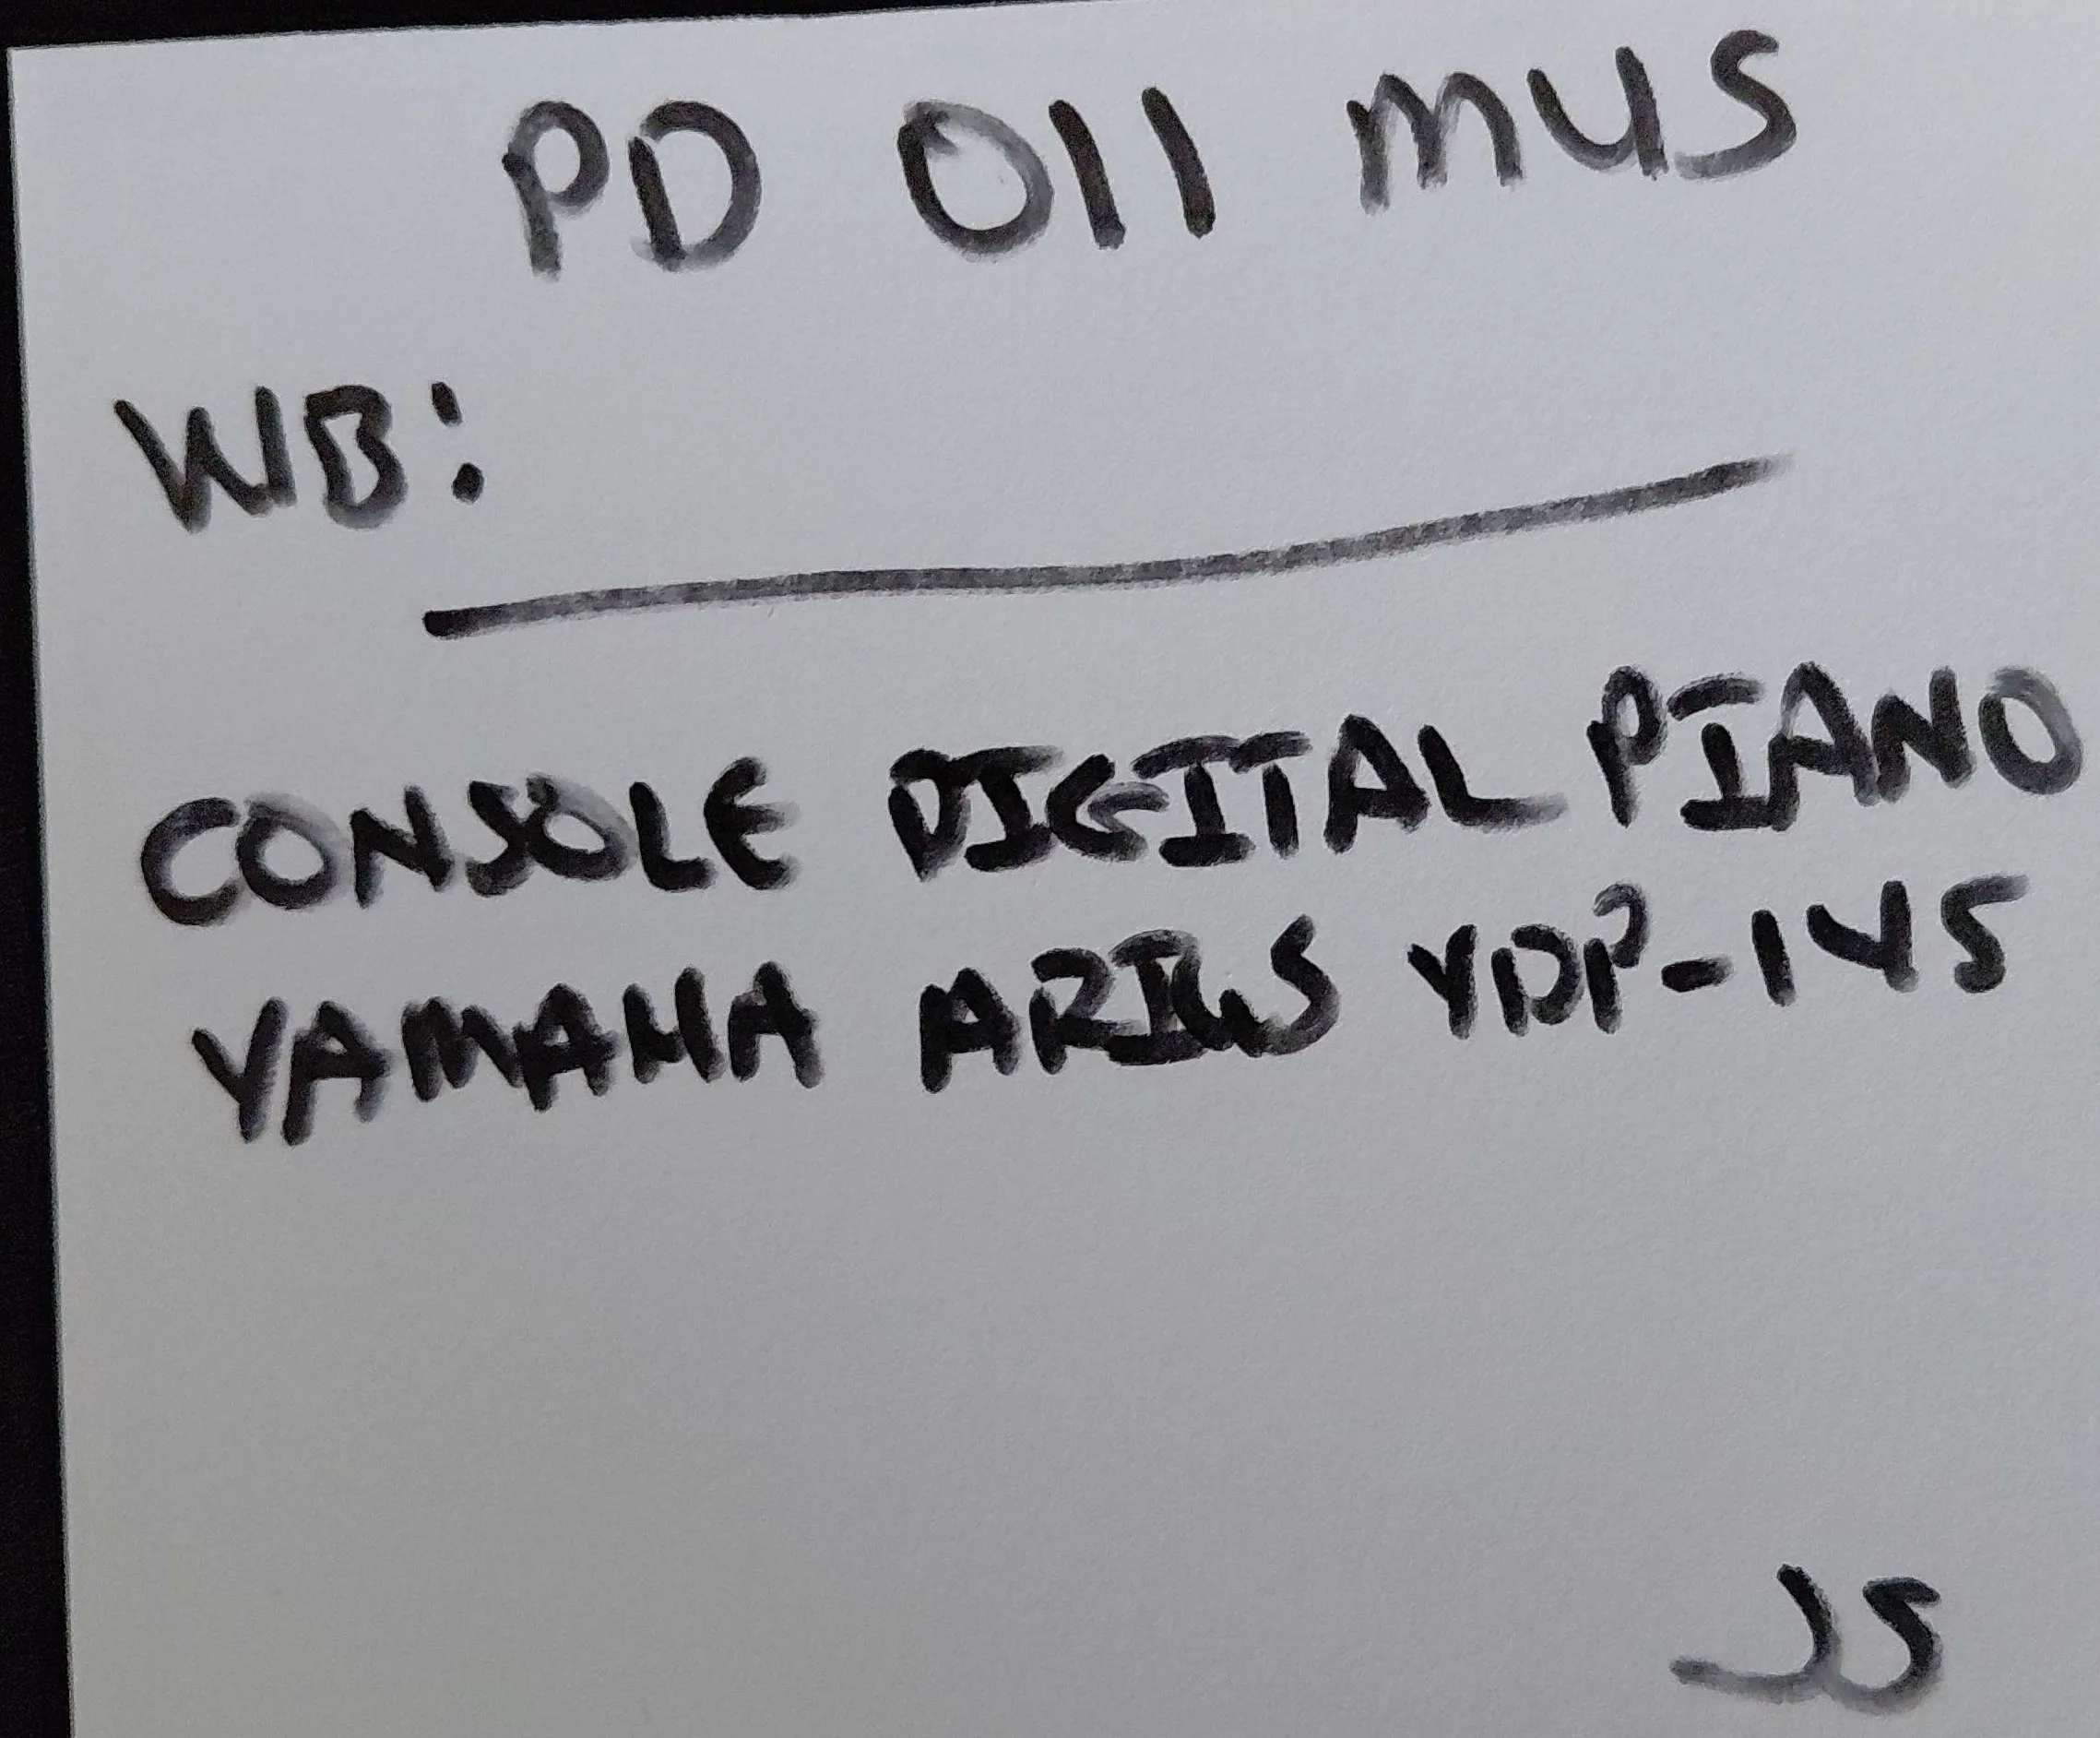 PD 011 MUS
WB:
CONSOLE DIGITAL PIANO
YAMAHA ARIUS YDP-145
JS